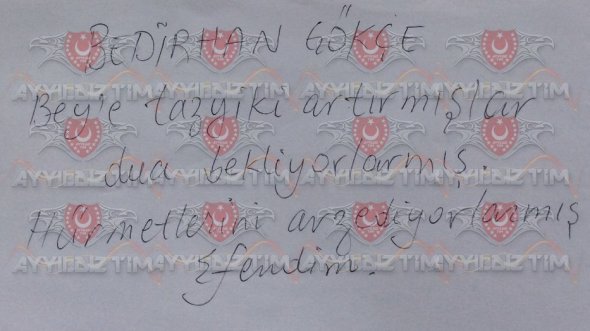 BEDİRHAN GÖKÇE
Bey'e tazyiki artırmışlar
dua bekliyorlarmış.
Hürmetlerini arzediyorlarmış
Efendim.
AYYILDIZ TİM AYYILDIZ TİM AYYILDIZ TİM AYYILDIZ TİM
AYYILDIZ TİM AYYILDIZ TİM AYYILDIZ TİM AYYILDIZ TİM
AYYILDIZ TİM AYYILDIZ TİM AYYILDIZ TİM AYYILDIZ TİM